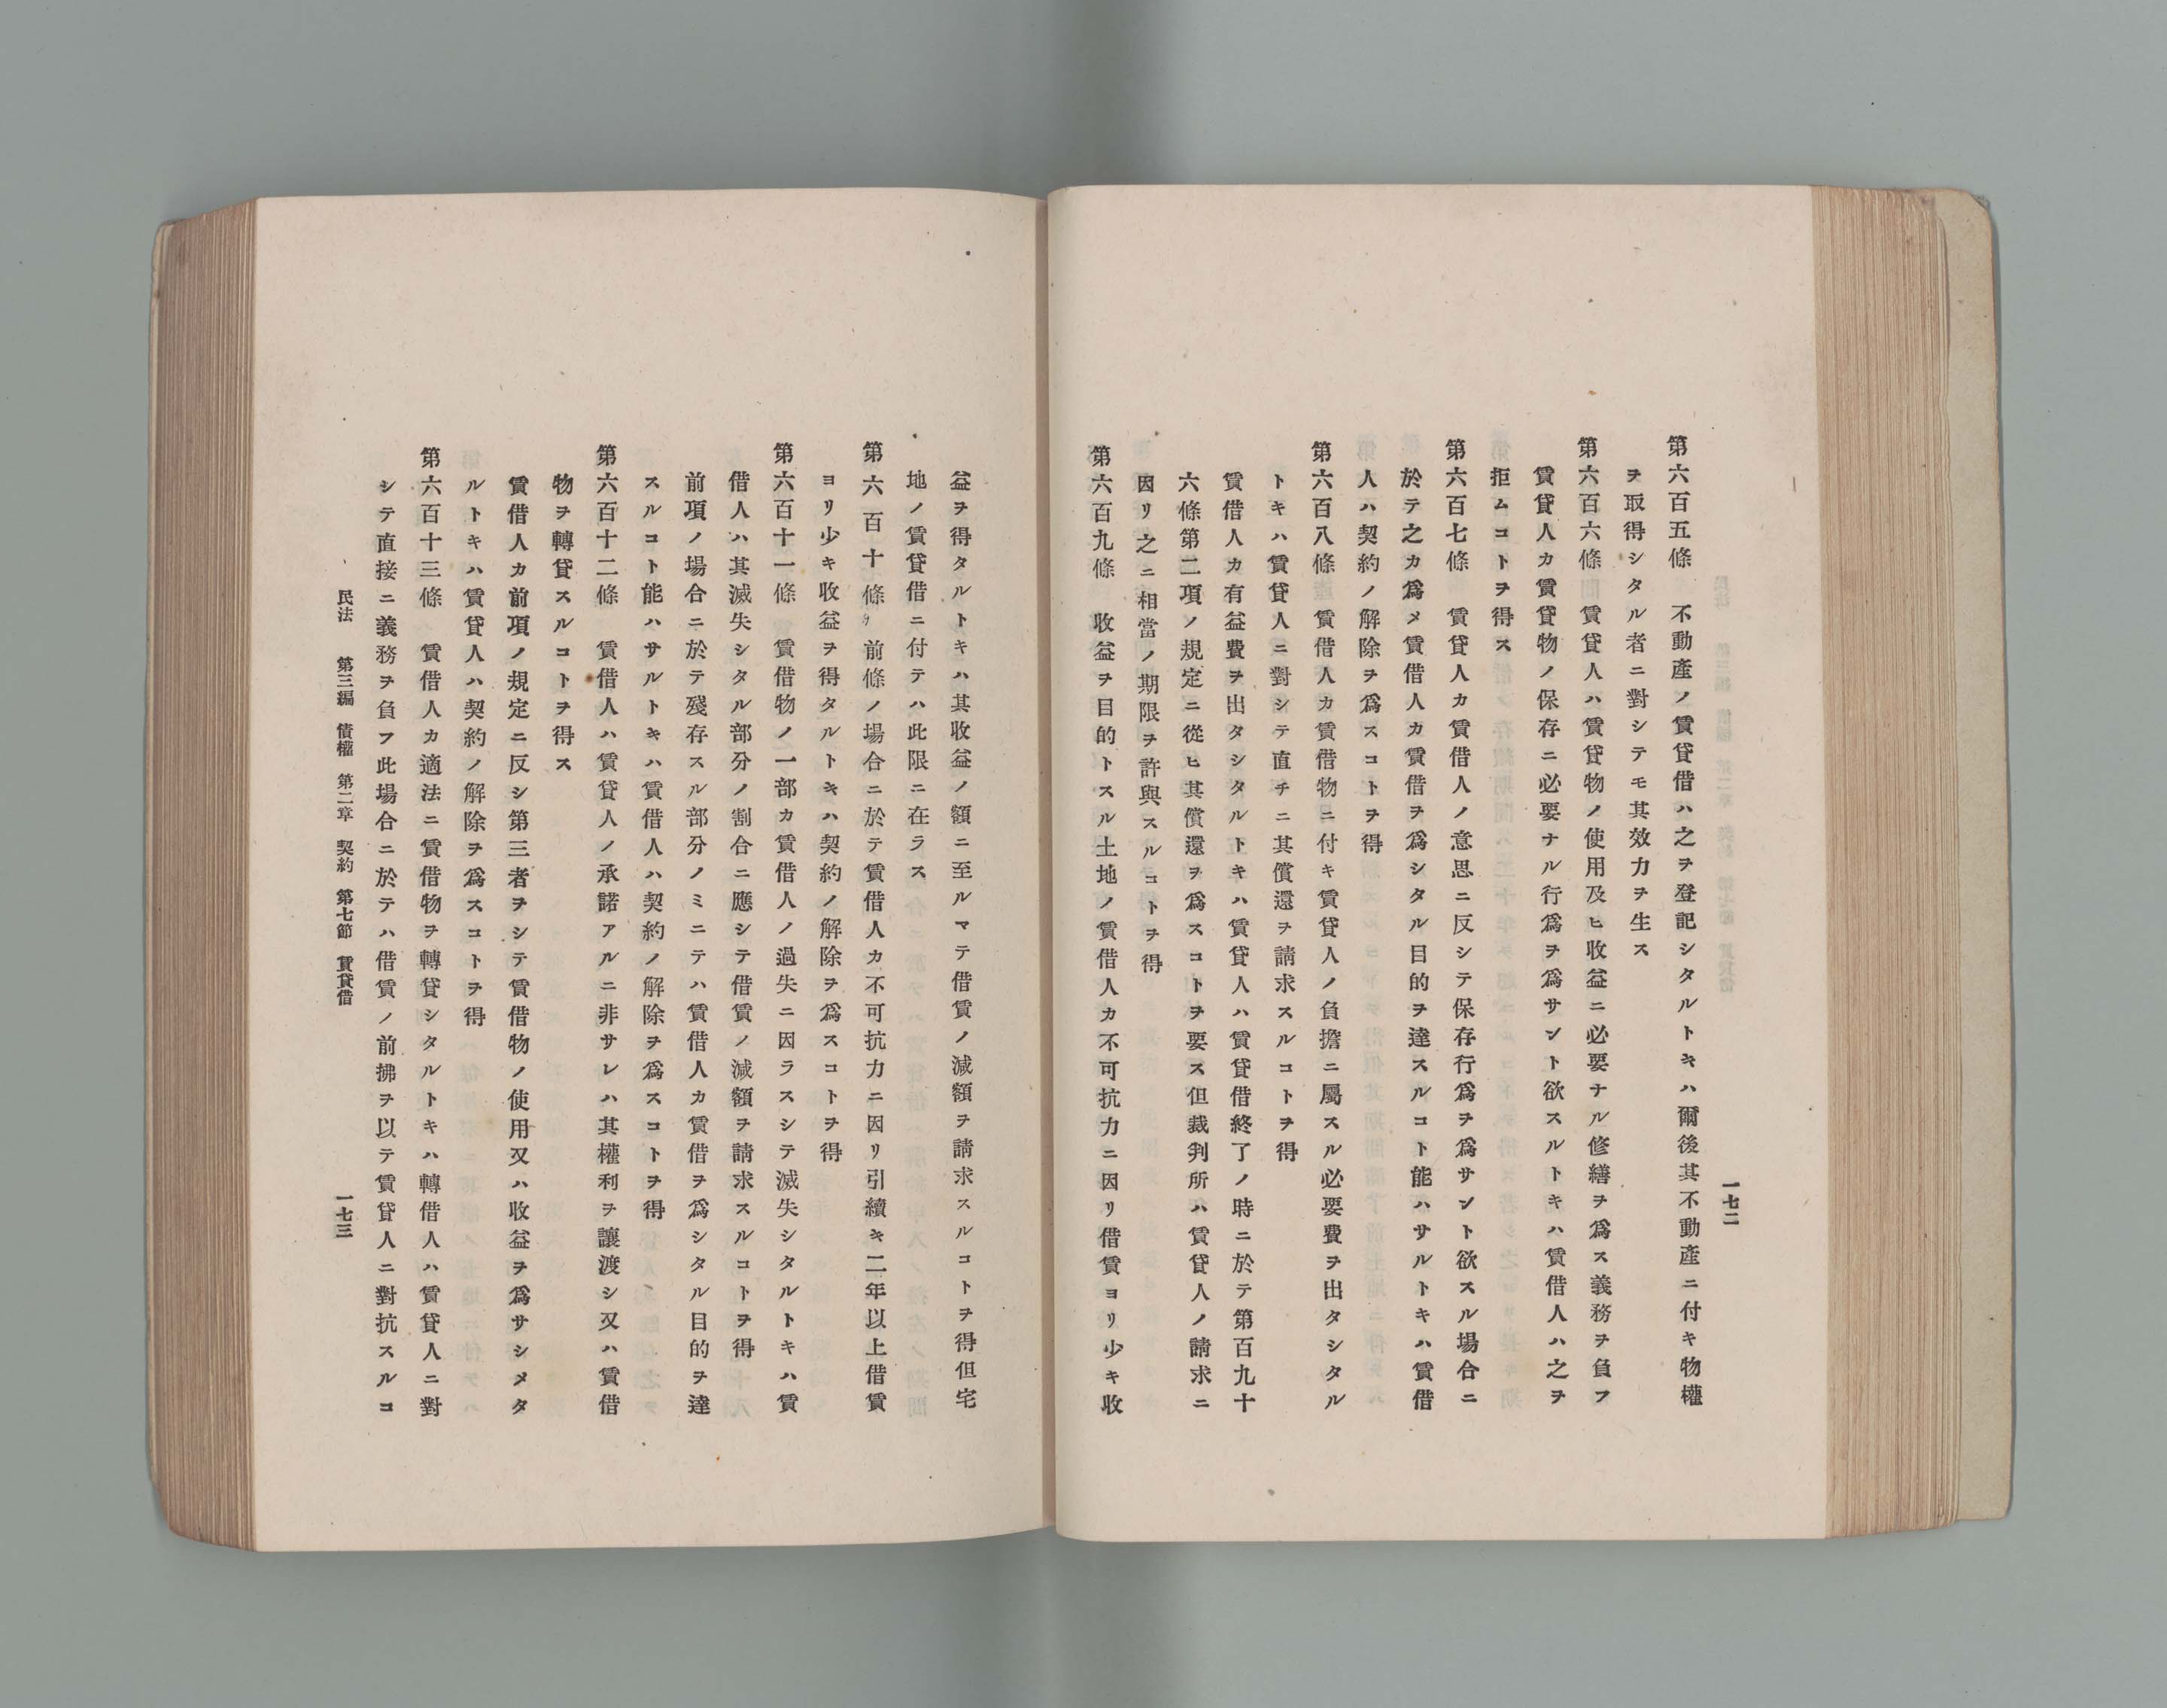 第六百五條　不動產ノ賃貸借ハ之ヲ登記シタルトキハ爾後其不動產ニ付キ物權
ヲ取得シタル者ニ對シテモ其效力ヲ生ス
第六百六條　賃貸人ハ賃貸物ノ使用及ヒ收益ニ必要ナル修繕ヲ爲ス義務ヲ負フ
賃貸人カ賃貸物ノ保存ニ必要ナル行爲ヲ爲サント欲スルトキハ賃借人ハ之ヲ
拒ムコトヲ得ス
第六百七條　賃貸人カ賃借人ノ意思ニ反シテ保存行爲ヲ爲サント欲スル場合ニ
於テ之カ爲メ賃借人カ賃借ヲ爲シタル目的ヲ達スルコト能ハサルトキハ賃借
人ハ契約ノ解除ヲ爲スコトヲ得
第六百八條　賃借人カ賃借物ニ付キ賃貸人ノ負擔ニ屬スル必要費ヲ出タシタル
トキハ賃貸人ニ對シテ直チニ其償還ヲ請求スルコトヲ得
賃借人カ有益費ヲ出タシタルトキハ賃貸人ハ賃貸借終了ノ時ニ於テ第百九十
六條第二項ノ規定ニ從ヒ其償還ヲ爲スコトヲ要ス但裁判所ハ賃貸人ノ請求ニ
因リ之ニ相當ノ期限ヲ許與スルコトヲ得
第六百九條　收益ヲ目的トスル土地ノ賃借人カ不可抗力ニ因リ借賃ヨリ少キ收
一七二
益ヲ得タルトキハ其收益ノ額ニ至ルマテ借賃ノ減額ヲ請求スルコトヲ得但宅
地ノ賃貸借ニ付テハ此限ニ在ラス
第六百十條　前條ノ場合ニ於テ賃借人カ不可抗力ニ因リ引續キ二年以上借賃
ヨリ少キ收益ヲ得タルトキハ契約ノ解除ヲ爲スコトヲ得
第六百十一條　賃借物ノ一部カ賃借人ノ過失ニ因ラスシテ滅失シタルトキハ賃
借人ハ其滅失シタル部分ノ割合ニ應シテ借賃ノ減額ヲ請求スルコトヲ得
前項ノ場合ニ於テ殘存スル部分ノミニテハ賃借人カ賃借ヲ爲シタル目的ヲ達
スルコト能ハサルトキハ賃借人ハ契約ノ解除ヲ爲スコトヲ得
第六百十二條　賃借人ハ賃貸人ノ承諾アルニ非サレハ其權利ヲ讓渡シ又ハ賃借
物ヲ轉貸スルコトヲ得ス
賃借人カ前項ノ規定ニ反シ第三者ヲシテ賃借物ノ使用又ハ收益ヲ爲サシメタ
ルトキハ賃貸人ハ契約ノ解除ヲ爲スコトヲ得
第六百十三條　賃借人カ適法ニ賃借物ヲ轉貸シタルトキハ轉借人ハ賃貸人ニ對
シテ直接ニ義務ヲ負フ此場合ニ於テハ借賃ノ前拂ヲ以テ賃貸人ニ對抗スルコ
民法　第三編　債權　第二章　契約　第七節　賃貸借
一七三